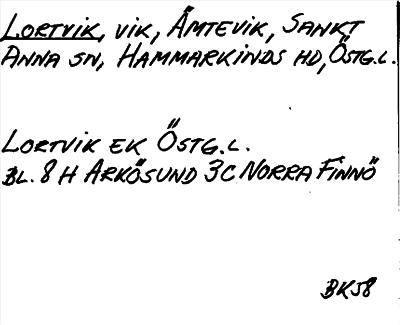 Lortvik, vik, Ämtevik, Sankt
Anna sn, Hammarkinds hd, Östg.l.
Lortvik ek Östg.l.
Bl. 8 H Arkösund 3c Norra Finnö
BK58